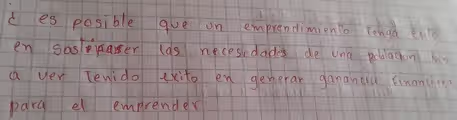 ¿ es posible que un emprendimiento tenga exito
en sastiparser las necesidades de una poblacion sin
a ver tenido exito en generar ganancia financiera
para el emprender